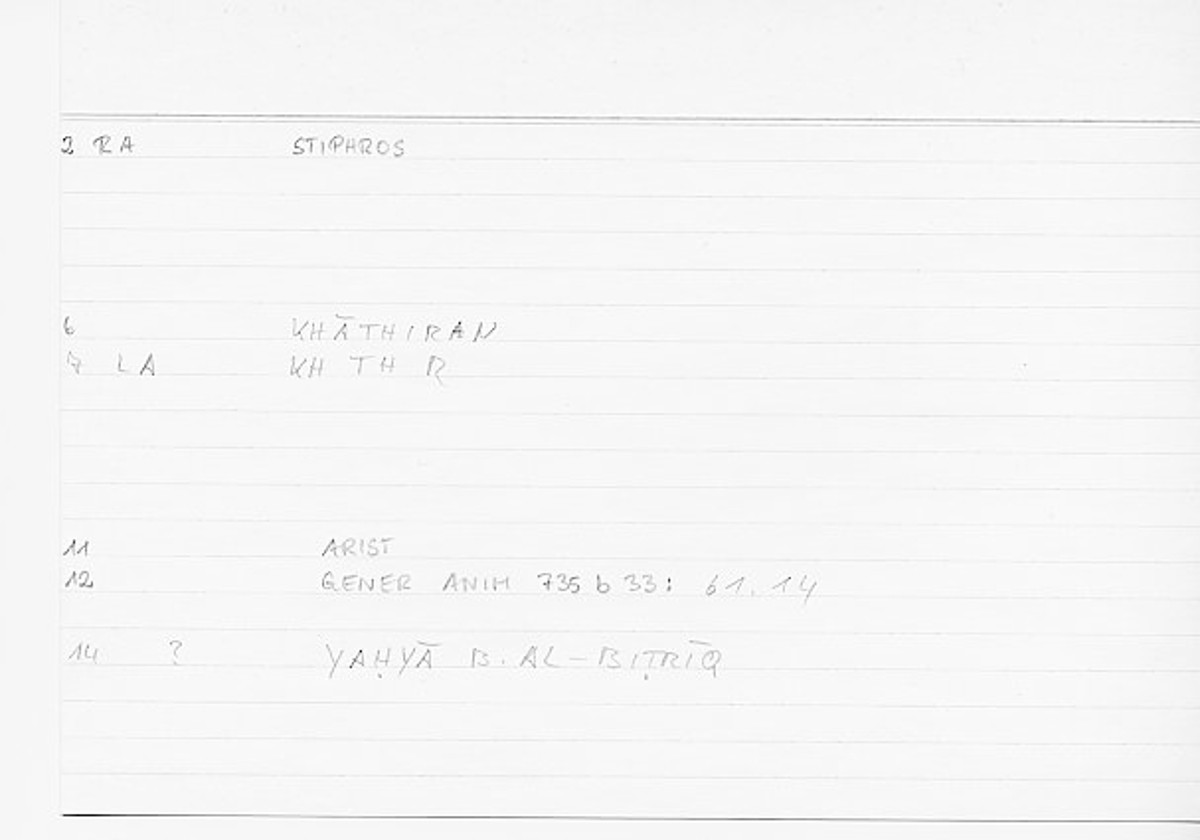 2 RA STIPHROS
6 KHĀTHIRAN
7 LA KH TH R
11 ARIST
12 GENER ANIM 735 b 33: 61.14
14 ? YAḤYĀ B. AL-BIṬRĪQ